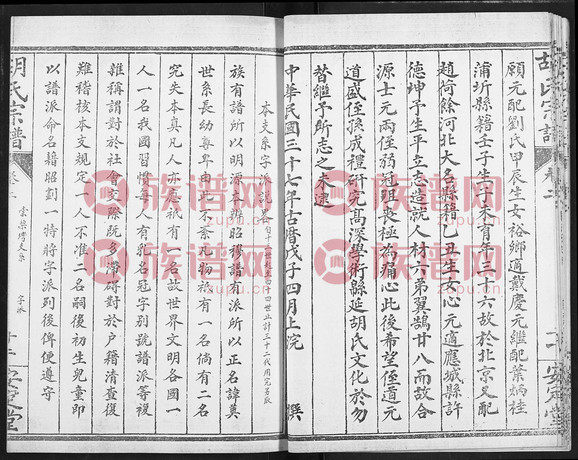 胡氏宗譜
卷二
安定堂
願元配劉氏甲辰生女裕鄉適戴慶元繼配葉炳桂
蒲圻縣籍壬子生于未有年三十六故於北京又配
趙荷餘河北大名縣籍乙丑生女心元適應城縣許
德坤予生平立志造就人材六弟翼鵠廿八而故合
源士元兩侄弱冠相喪極為痛心此後希望侄道元
道盛侄孫成禮研究高深學術縣延胡氏文化於勿
替繼予所志之未逮
中華民國三十七年古曆戊子四月上浣 撰
本支系字派說畧
族有譜所以明源本辨昭穆譜有派所以正名諱奠
世系長幼尊卑由此不紊凡物祇有一名倘有二名
究失本真凡人亦然祇有一名故世界文明各國一
人一名我國習慣每人有乳名冠字別號譜派等複
雜稱謂對於社會交際既多滯碍對於户籍清查復
難稽核本支規定一人不准二名嗣後初生兒童即
以譜派命名籍昭劃一特將字派列後俾便遵守
字派
胡氏宗譜
安定堂
族谱网
www.zupu.cn